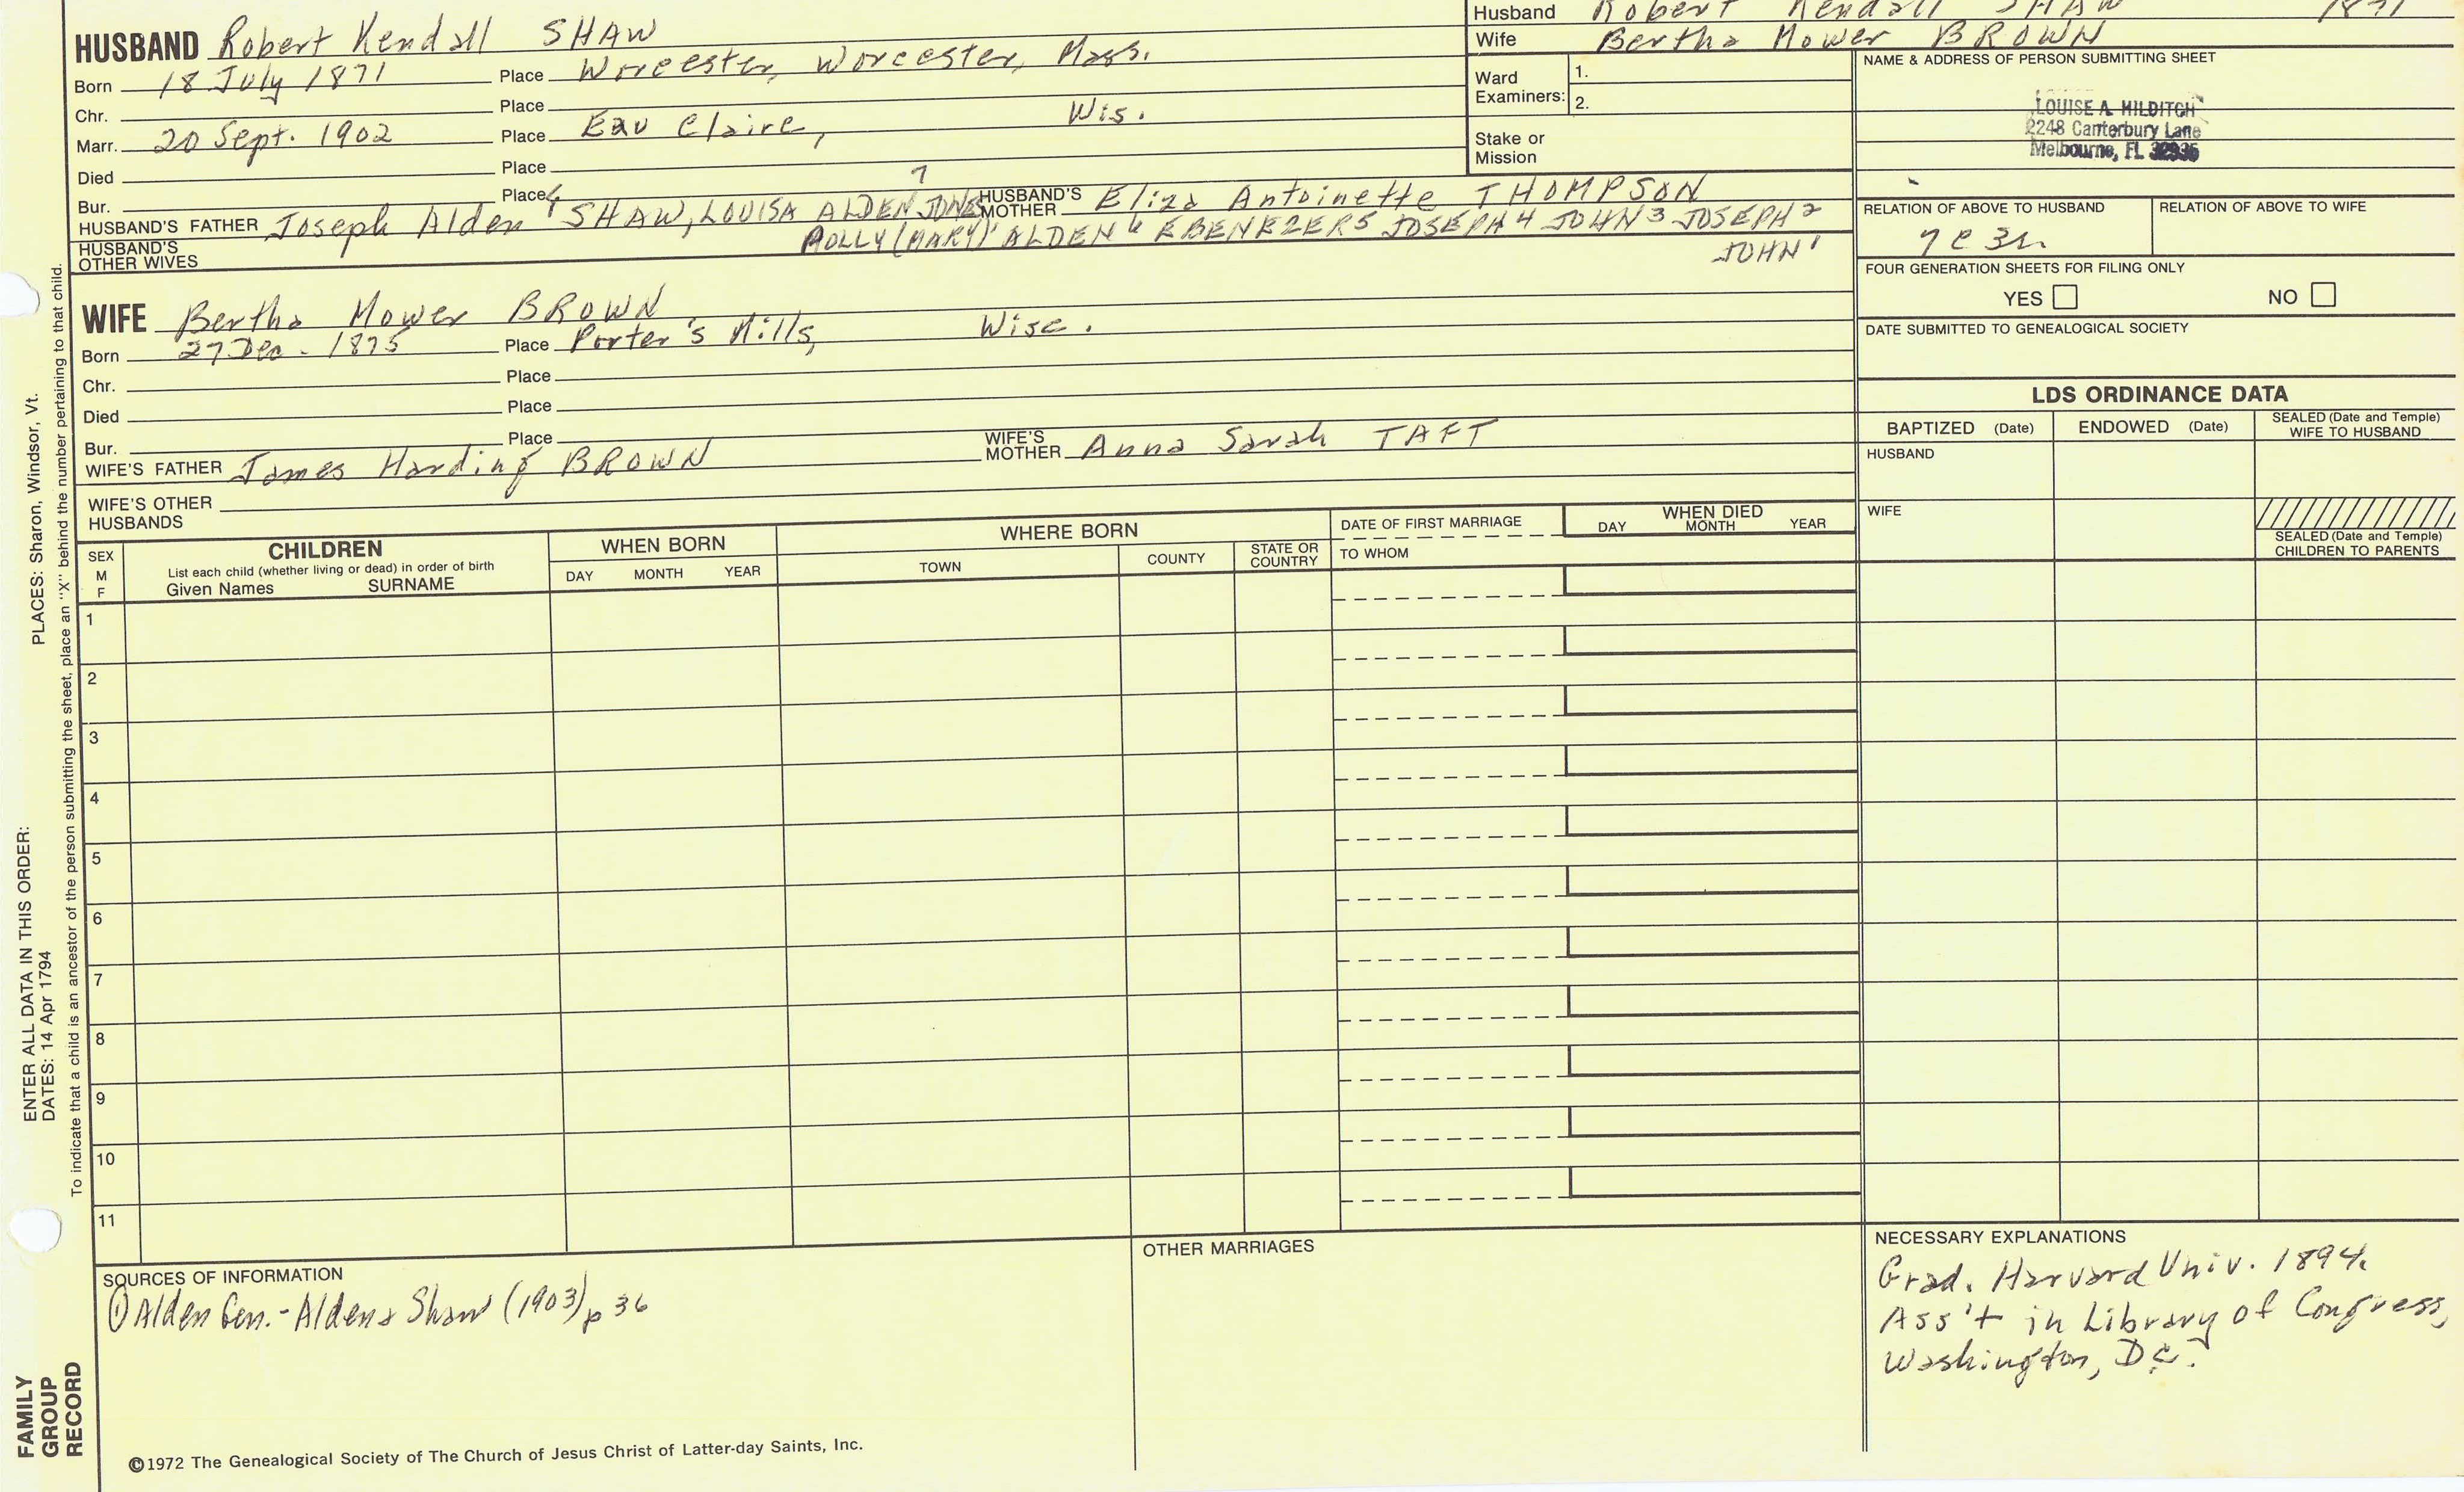 Husband Robert Kendall SHAW 1871
Wife Bertha Mower BROWN
HUSBAND Robert Kendall SHAW
Born 18 July 1871 Place Worcester, Worcester, Mass.
Chr. Place
Marr. 20 Sept. 1902 Place Eau Claire, Wis.
Died Place
Bur. Place
HUSBAND'S FATHER Joseph Alden SHAW, LOUISA ALDEN JONES 7 HUSBAND'S MOTHER Eliza Antoinette THOMPSON
POLLY (MARY) ALDEN 6 EBENEZER 5 JOSEPH 4 JOHN 3 JOSEPH 2
JOHN 1
HUSBAND'S OTHER WIVES
Ward Examiners: 1.
2.
Stake or Mission
NAME & ADDRESS OF PERSON SUBMITTING SHEET
LOUISE A. MILDITCH
2248 Canterbury Lane
Melbourne, FL 32935
RELATION OF ABOVE TO HUSBAND
7c3r
RELATION OF ABOVE TO WIFE
FOUR GENERATION SHEETS FOR FILING ONLY
YES NO
DATE SUBMITTED TO GENEALOGICAL SOCIETY
WIFE Bertha Mower BROWN
Born 27 Dec. 1875 Place Porter's Mills, Wisc.
Chr. Place
Died Place
Bur. Place
WIFE'S FATHER James Harding BROWN WIFE'S MOTHER Anna Sarah TAFT
WIFE'S OTHER HUSBANDS
LDS ORDINANCE DATA
BAPTIZED (Date) ENDOWED (Date) SEALED (Date and Temple) WIFE TO HUSBAND
HUSBAND
WIFE
SEALED (Date and Temple) CHILDREN TO PARENTS
SEX M F
CHILDREN
List each child (whether living or dead) in order of birth
Given Names SURNAME
WHEN BORN
DAY MONTH YEAR
WHERE BORN
TOWN COUNTY STATE OR COUNTRY
DATE OF FIRST MARRIAGE
TO WHOM
WHEN DIED
DAY MONTH YEAR
1
2
3
4
5
6
7
8
9
10
11
SOURCES OF INFORMATION
① Alden Gen. - Alden & Shaw (1903) p 36
OTHER MARRIAGES
NECESSARY EXPLANATIONS
Grad. Harvard Univ. 1894.
Ass't in Library of Congress,
Washington, D.C.
©1972 The Genealogical Society of The Church of Jesus Christ of Latter-day Saints, Inc.
FAMILY GROUP RECORD
ENTER ALL DATA IN THIS ORDER:
DATES: 14 Apr 1794
PLACES: Sharon, Windsor, Vt.
To indicate that a child is an ancestor of the person submitting the sheet, place an "X" behind the number pertaining to that child.